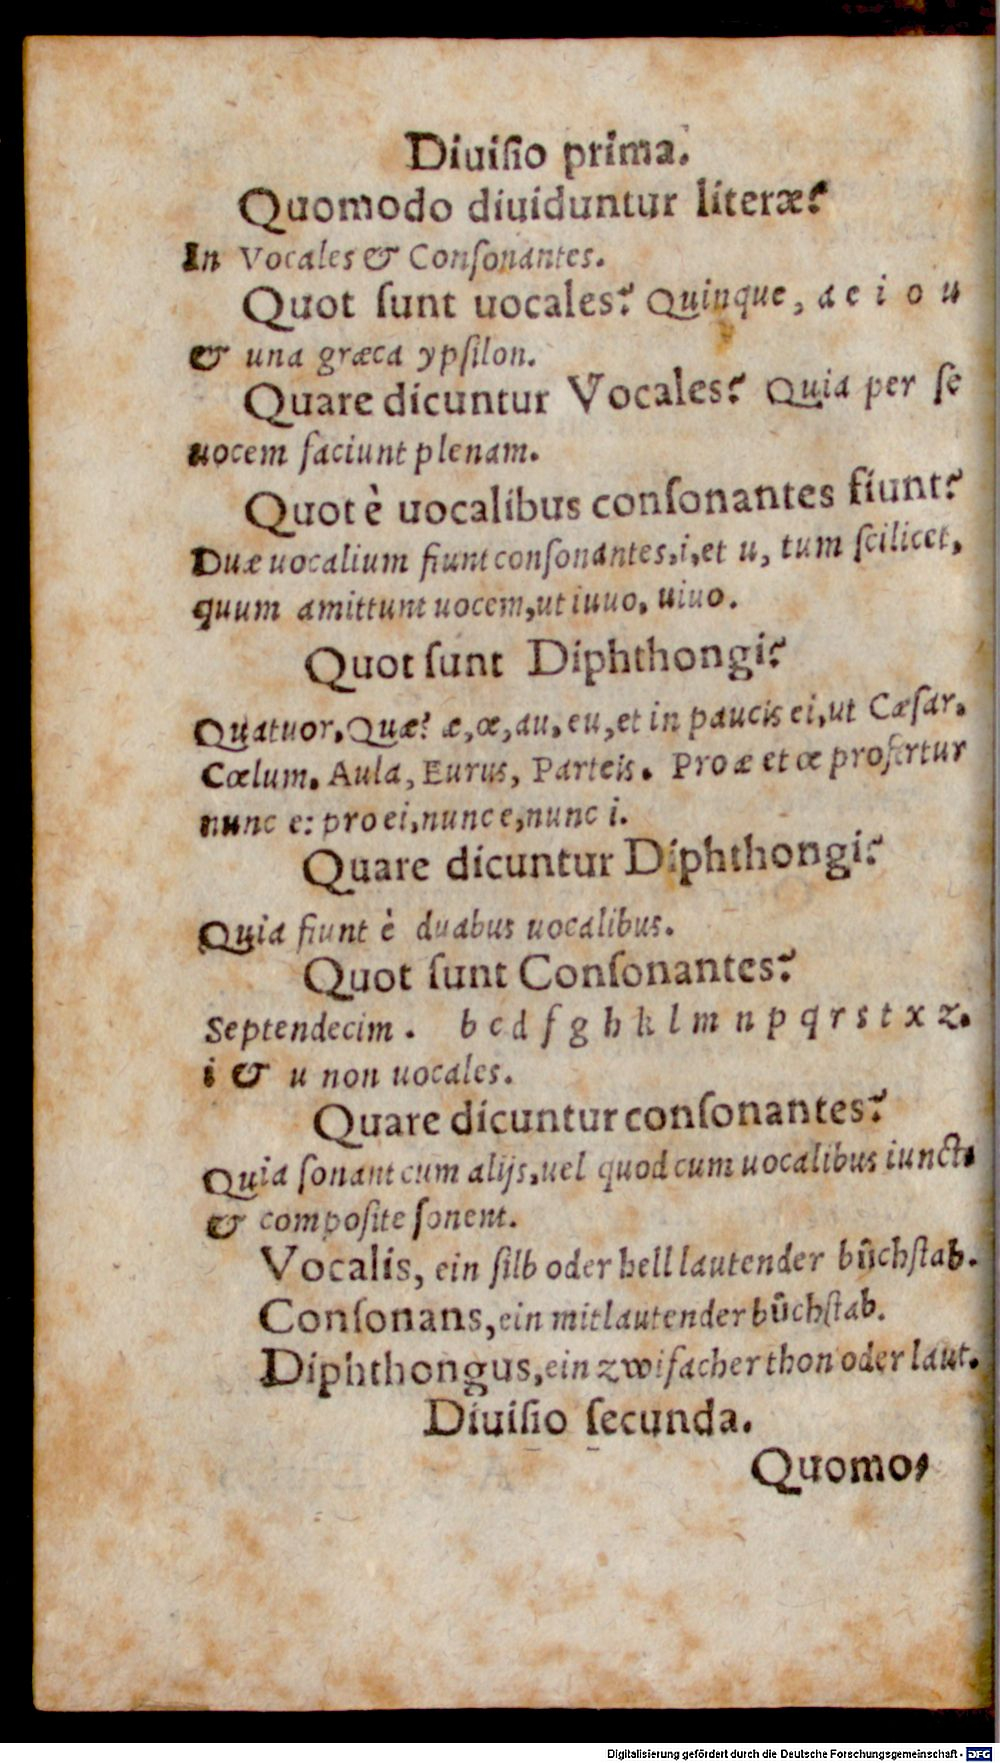 Diuiſio prima.
Quomodo diuiduntur literæ?
In Vocales & Conſonantes.
Quot ſunt uocales? Quinque, a e i o u
& una græca ypſilon.
Quare dicuntur Vocales? Quia per ſe
uocem faciunt plenam.
Quot è uocalibus conſonantes fiunt?
Duæ uocalium fiunt conſonantes, i, et u, tum ſcilicet,
quum amittunt uocem, ut iuuo, uiuo.
Quot ſunt Diphthongi?
Quatuor. Quæ? æ, œ, au, eu, et in paucis ei, ut Cæſar.
Cœlum. Aula, Eurus, Parteis. Pro æ et œ profertur
nunc e: pro ei, nunc e, nunc i.
Quare dicuntur Diphthongi?
Quia fiunt è duabus uocalibus.
Quot ſunt Conſonantes?
Septendecim. b c d f g h k l m n p q r s t x z.
i & u non uocales.
Quare dicuntur conſonantes?
Quia ſonant cum alijs, uel quod cum uocalibus iunctæ
& compoſite ſonent.
Vocalis, ein ſilb oder hell lautender bůchſtab.
Conſonans, ein mitlautender bůchſtab.
Diphthongus, ein zwifacher thon oder laut.
Diuiſio ſecunda.
Quomo⸗
Digitalisierung gefördert durch die Deutsche Forschungsgemeinschaft - DFG